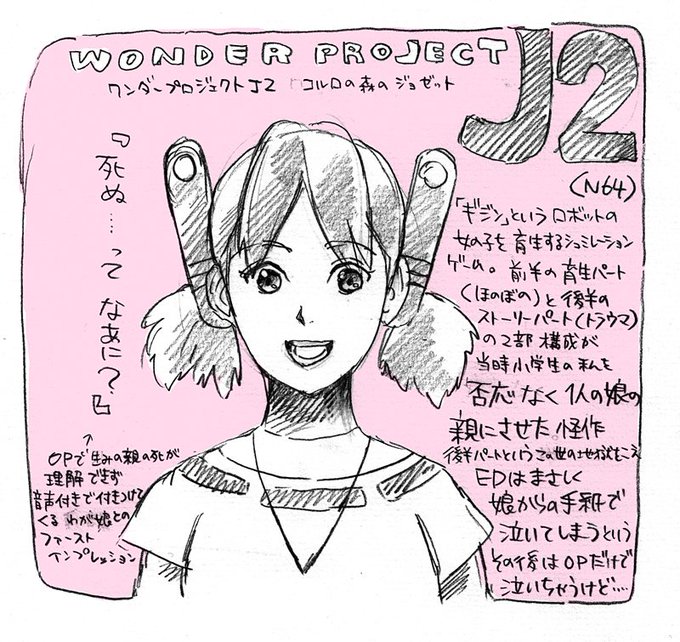 WONDER PROJECT J2
ワンダープロジェクトJ2 コルロの森のジョゼット
(N64)
「ギジン」というロボットの
女の子を育生するシュミレーション
ゲーム。前半の育生パート
(ほのぼの)と後半の
ストーリーパート(トラウマ)
の2部構成が
当時小学生の私を
否応なく1人の娘の
親にさせた怪作
後半パートというこの世の地獄をこえ
EDはまさしく
娘からの手紙で
泣いてしまうという
その後はOPだけで
泣いちゃうけど…
『死ぬ…って なぁに?』
↑
OPで生みの親の死が
理解できず
音声付きで付きつけて
くる わが娘との
ファースト
インプレッション